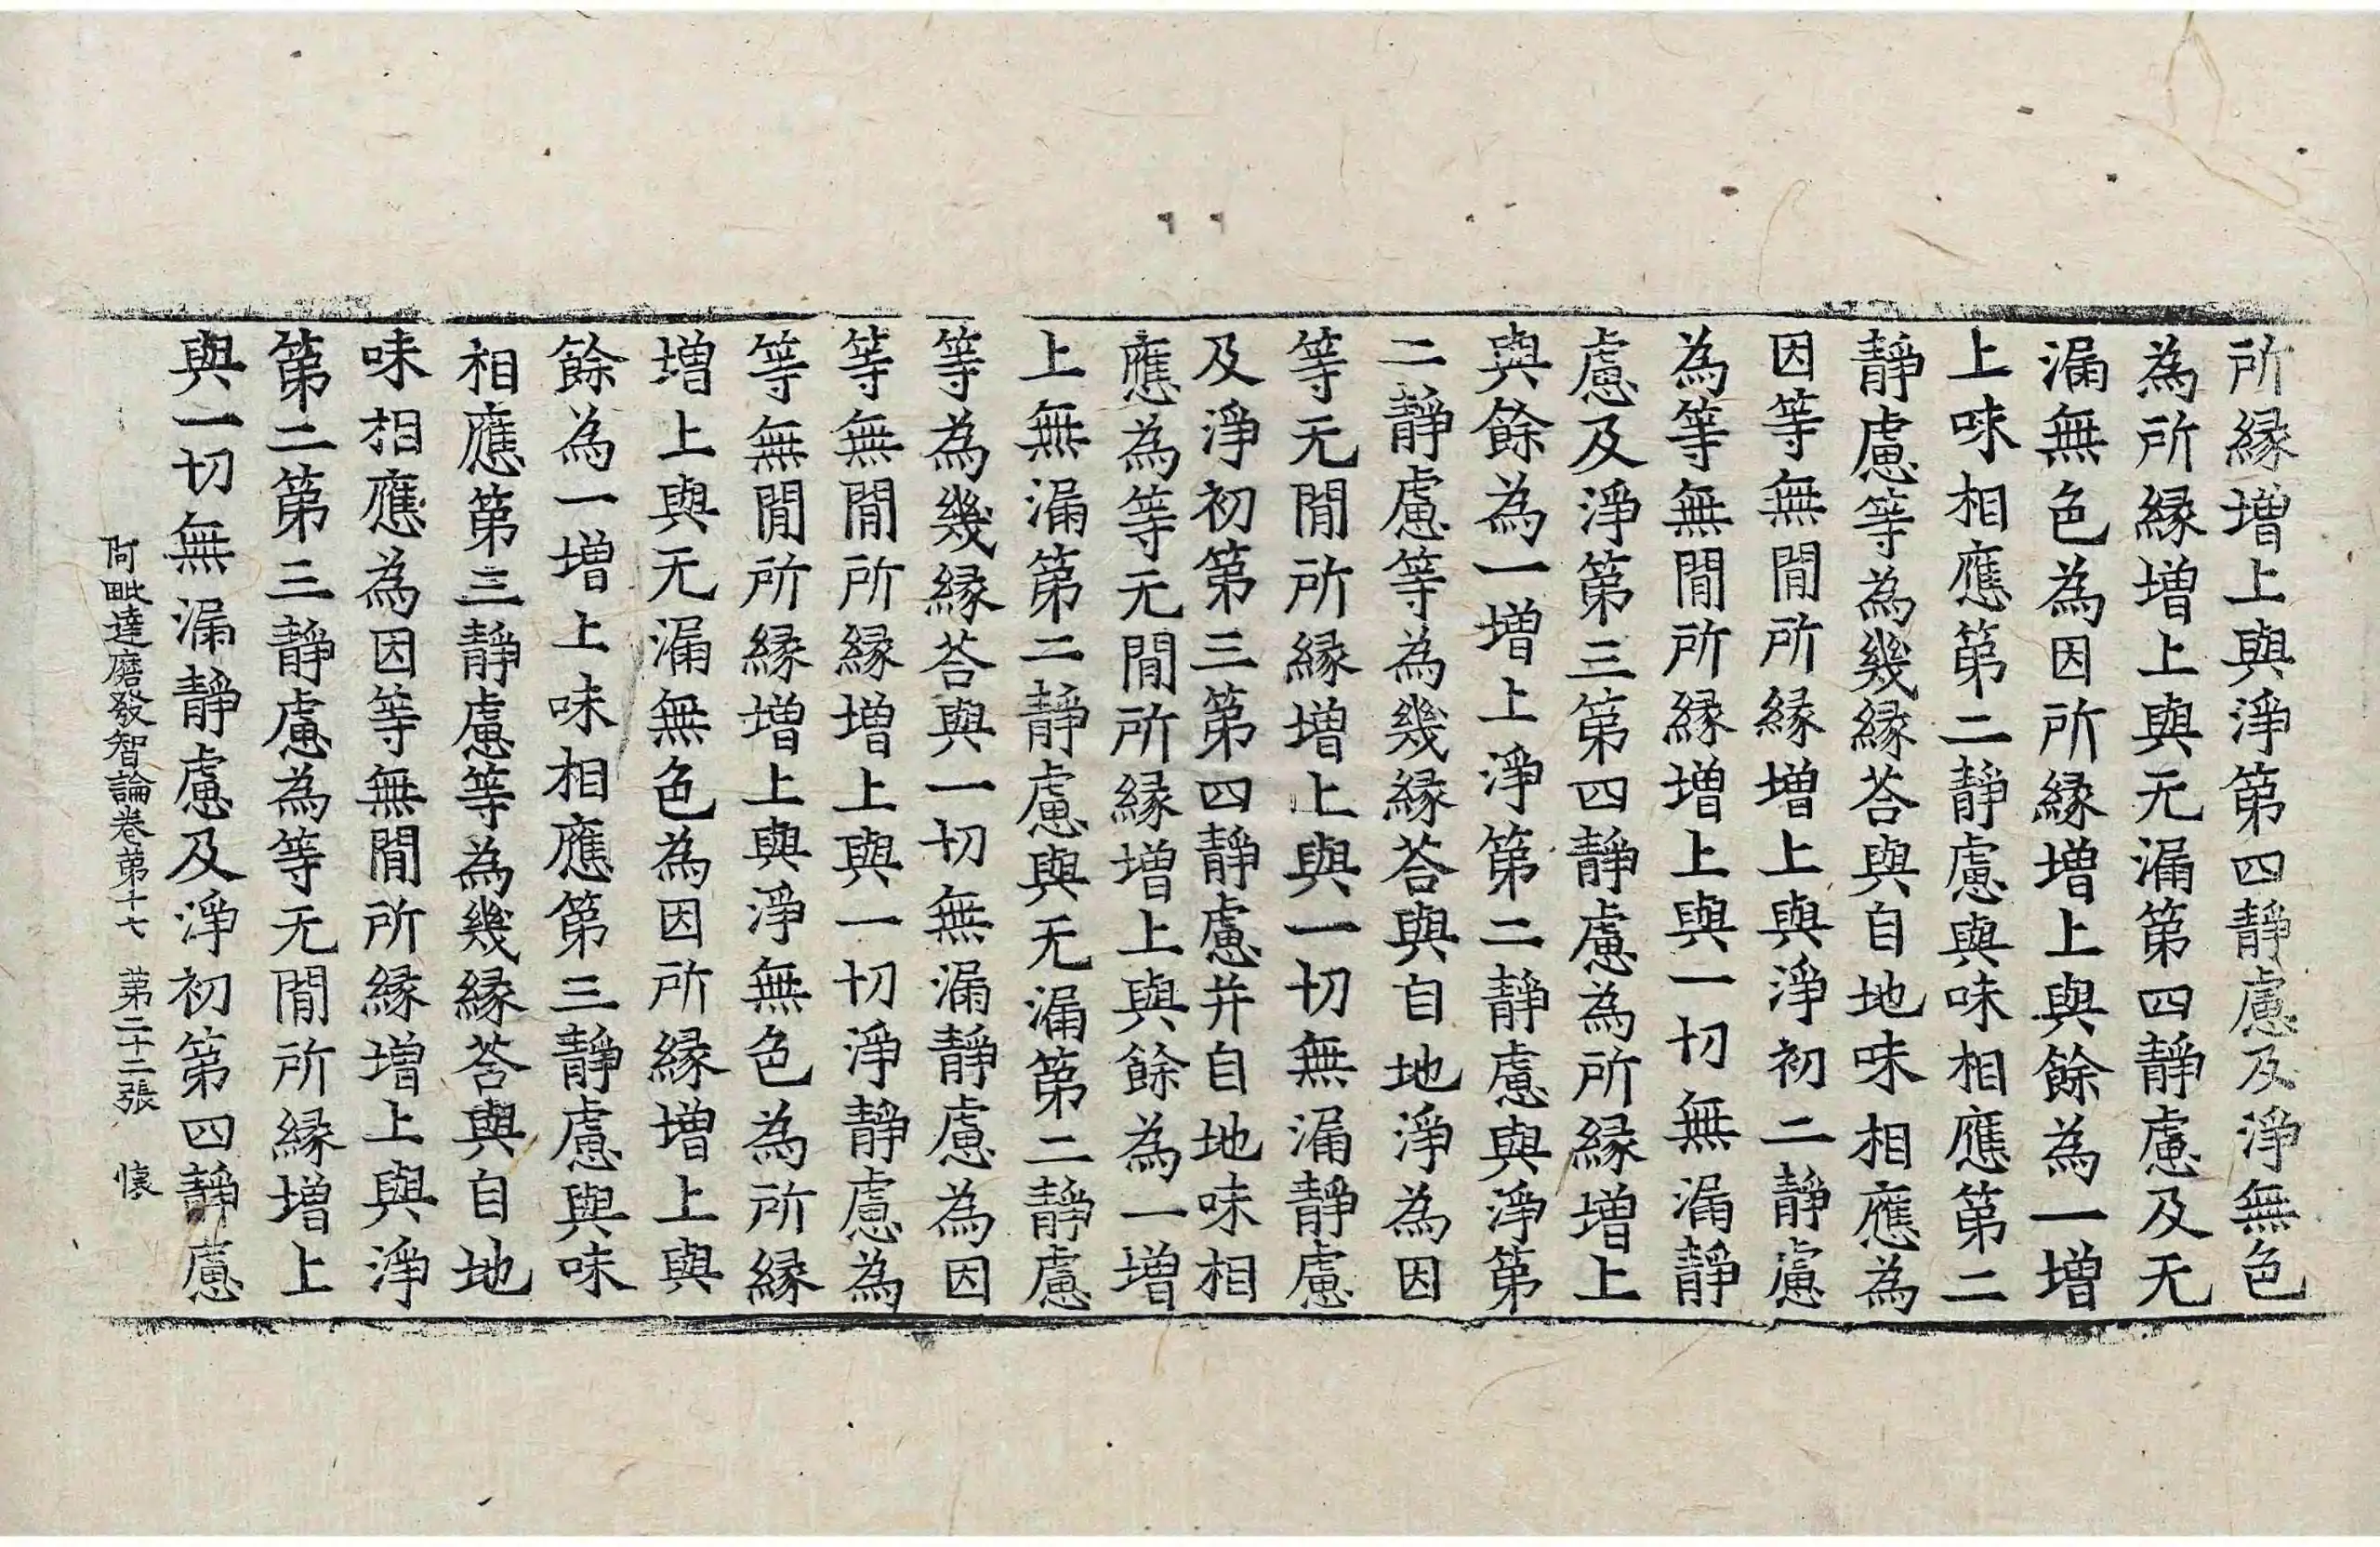 所縁增上與淨第四靜慮及淨無色
為所縁增上與无漏第四靜慮及无
漏無色為因所縁增上與餘為一增
上味相應第二靜慮與味相應第二
靜慮等為幾縁荅與自地味相應為
因等無間所縁增上與淨初二靜慮
為等無間所縁增上與一切無漏靜
慮及淨第三第四靜慮為所縁增上
與餘為一增上淨第二靜慮與淨第
二靜慮等為幾縁荅與自地淨為因
等无間所縁增上與一切無漏靜慮
及淨初第三第四靜慮并自地味相
應為等无間所縁增上與餘為一增
上無漏第二靜慮與无漏第二靜慮
等為幾縁荅與一切無漏靜慮為因
等無間所縁增上與一切淨靜慮為
等無間所縁增上與淨無色為所縁
增上與无漏無色為因所縁增上與
餘為一增上味相應第三靜慮與味
相應第三靜慮等為幾縁荅與自地
味相應為因等無間所縁增上與淨
第二第三靜慮為等无間所縁增上
與一切無漏靜慮及淨初第四靜慮
阿毗達磨發智論卷第十七 第二十二張 懷